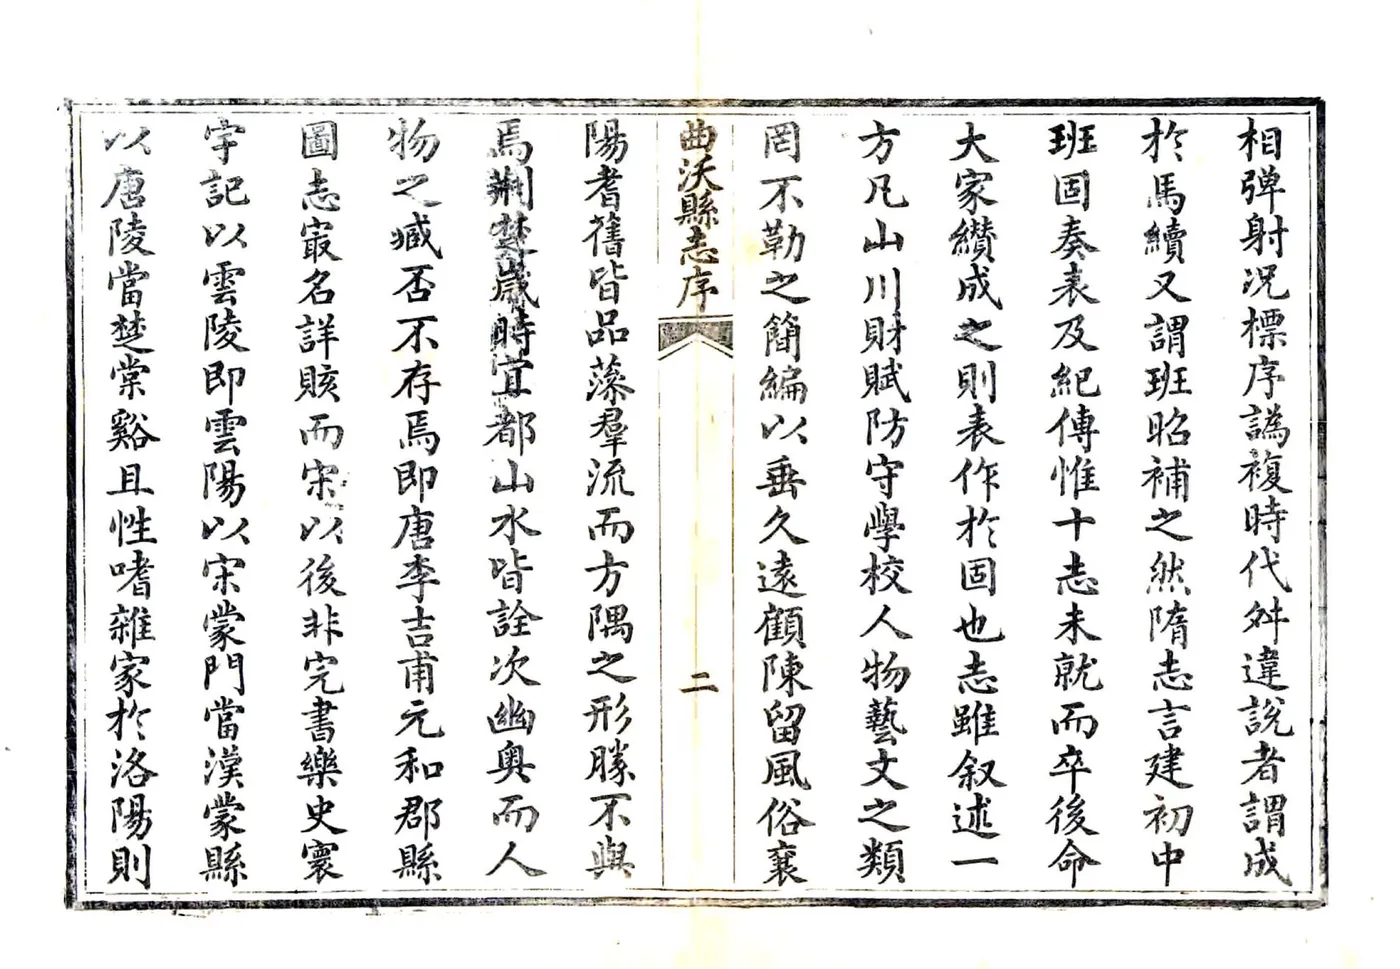 相彈射况標序譌複時代舛違說者謂成
於馬續又謂班昭補之然隋志言建初中
班固奏表及紀傳惟十志未就而卒後命
大家纘成之則表作於固也志雖叙述一
方凡山川財賦防守學校人物藝文之類
罔不勒之簡編以垂久遠顧陳留風俗襄
曲沃縣志序
二
陽耆舊皆品藻羣流而方隅之形勝不與
焉荆楚歲時宜都山水皆詮次幽奥而人
物之臧否不存焉即唐李吉甫元和郡縣
圖志㝡名詳賅而宋以後非完書樂史寰
宇記以雲陵即雲陽以宋蒙門當漢蒙縣
以唐陵當楚棠谿且性嗜雜家於洛陽則